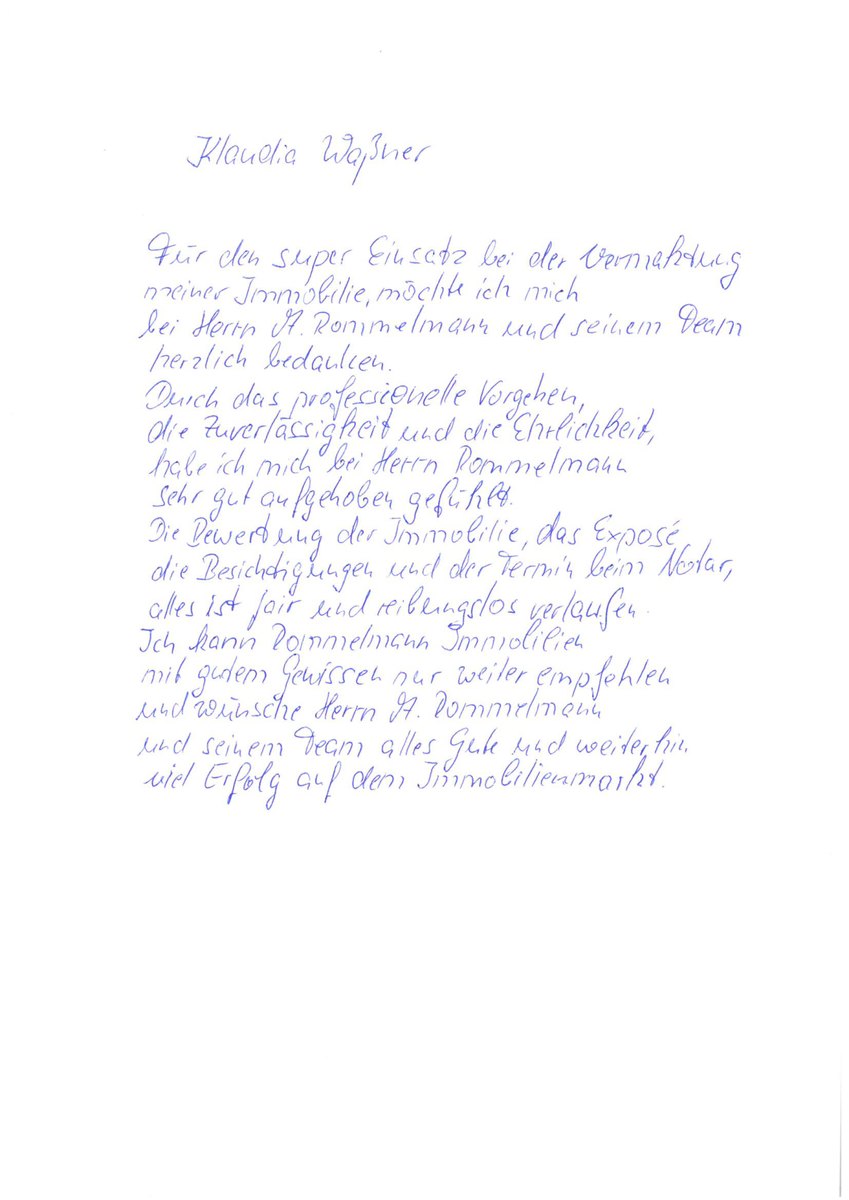 Klaudia Waßner
Für den super Einsatz bei der Vermarktung
meiner Immobilie, möchte ich mich
bei Herrn A. Rommelmann und seinem Team
herzlich bedanken.
Durch das professionelle Vorgehen,
die Zuverlässigkeit und die Ehrlichkeit,
habe ich mich bei Herrn Rommelmann
sehr gut aufgehoben gefühlt.
Die Bewertung der Immobilie, das Exposé,
die Besichtigungen und der Termin beim Notar,
alles ist fair und reibungslos verlaufen.
Ich kann Rommelmann Immobilien
mit gutem Gewissen nur weiter empfehlen
und wünsche Herrn A. Rommelmann
und seinem Team alles Gute und weiterhin
viel Erfolg auf dem Immobilienmarkt.